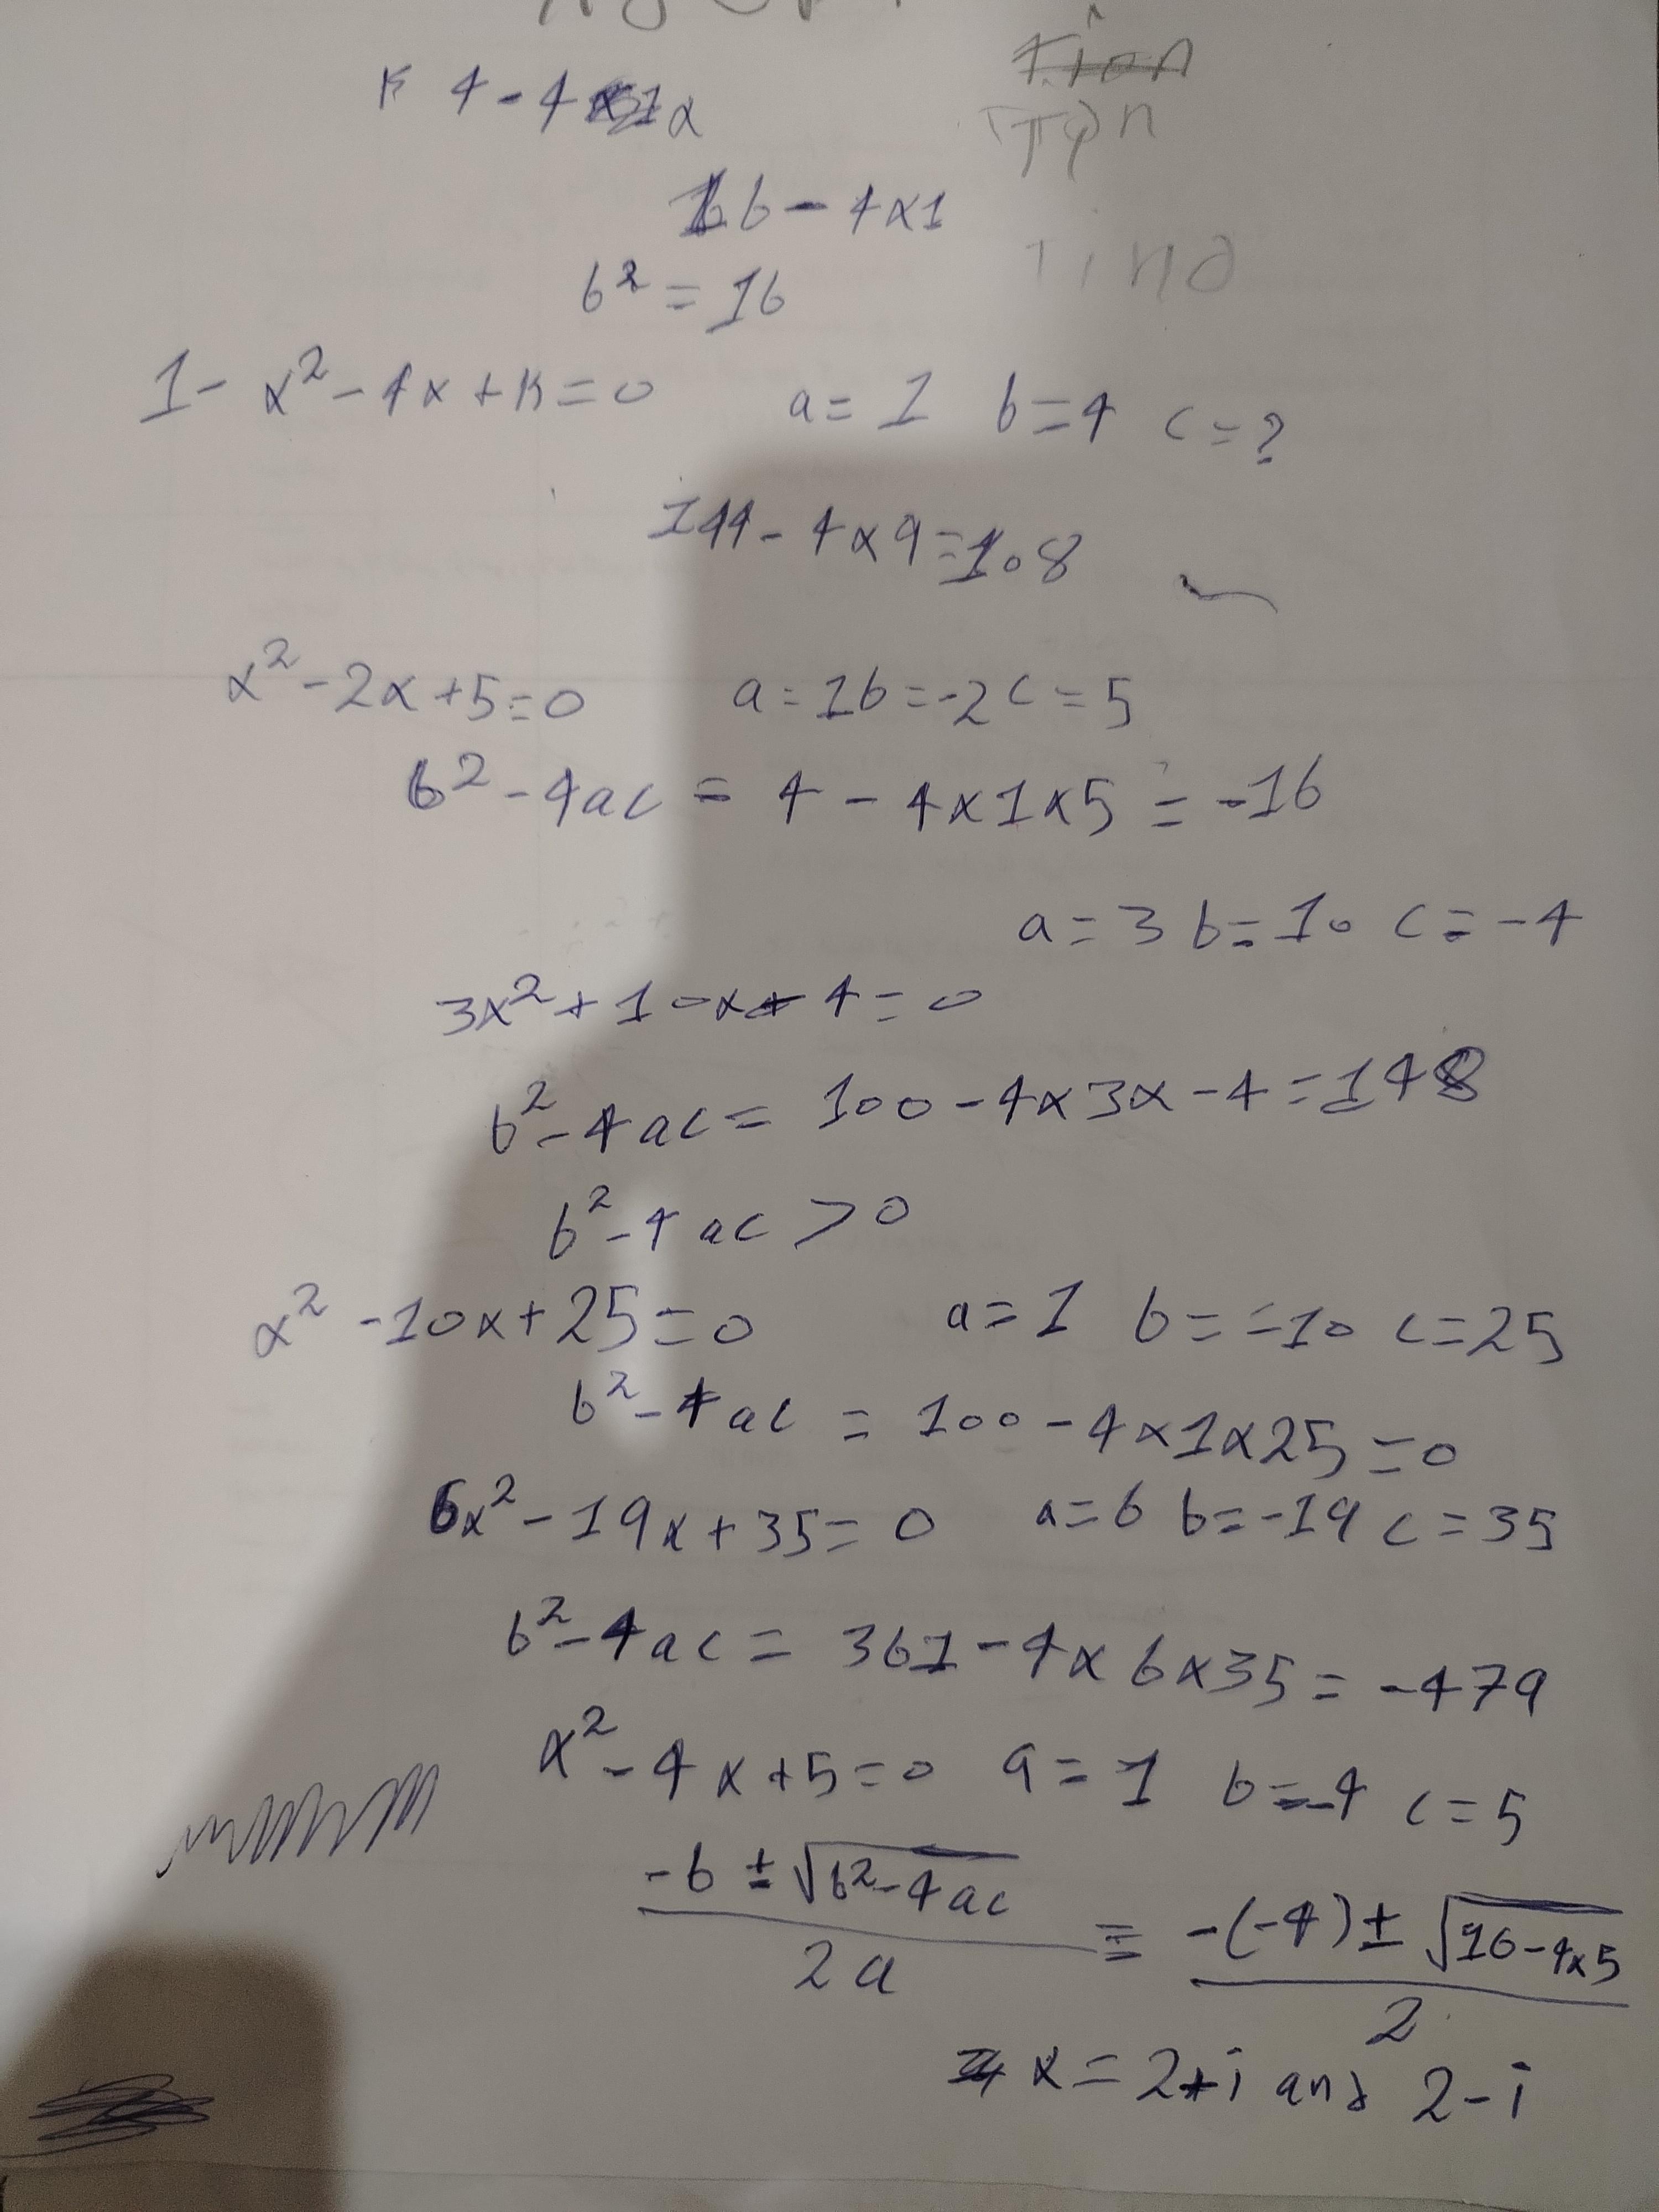 Tion
K 4-4 x1x
Tion
16 - 4x1
Tind
b² = 16
1- x² - 4x + K = 0 a = 1 b = 4 c = ?
144 - 4x9 = 108
x² - 2x + 5 = 0 a = 1 b = -2 c = 5
b² - 4ac = 4 - 4x1x5 = -16
a = 3 b = 10 c = -4
3x² + 10x - 4 = 0
b² - 4ac = 100 - 4x3x - 4 = 148
b² - 4ac > 0
x² - 10x + 25 = 0 a = 1 b = -10 c = 25
b² - 4ac = 100 - 4x1x25 = 0
6x² - 19x + 35 = 0 a = 6 b = -19 c = 35
b² - 4ac = 361 - 4x6x35 = -479
x² - 4x + 5 = 0 a = 1 b = -4 c = 5
(-b ± √(b² - 4ac))/2a = (-(-4) ± √(16 - 4x5))/2
x = 2+i and 2-i